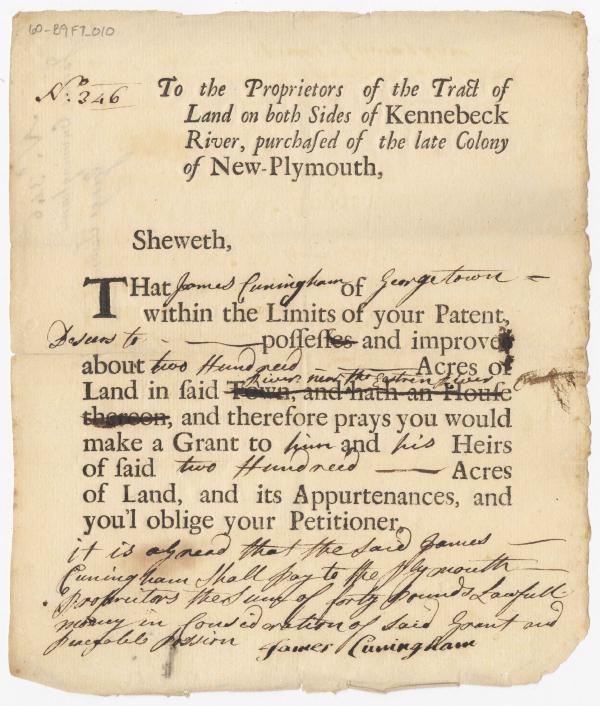 60-B9F7_010
No. 346
To the Proprietors of the Tract of
Land on both Sides of Kennebeck
River, purchaſed of the late Colony
of New-Plymouth,
Sheweth,
THat James Cuningham of Georgetown
within the Limits of your Patent,
Desiers to poſſeſſes and improve
about two Hundreed Acres of
River near the Eastren River
Land in ſaid Town, and hath an Houſe
thereon, and therefore prays you would
make a Grant to him and his Heirs
of ſaid two Hundreed Acres
of Land, and its Appurtenances, and
you'l oblige your Petitioner,
it is agread that the said James
Cuningham Shall pay to the plymouth
proprietors the Sum of forty pounds Lawfull
money in Consideration of said Grant and
James Cuningham